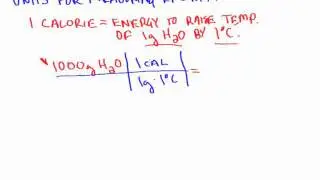 UNITS FOR
1 CALORIE = ENERGY TO RAISE TEMP.
OF 1g H2O BY 1°C.
1000g H2O | 1 CAL
1g·1°C =